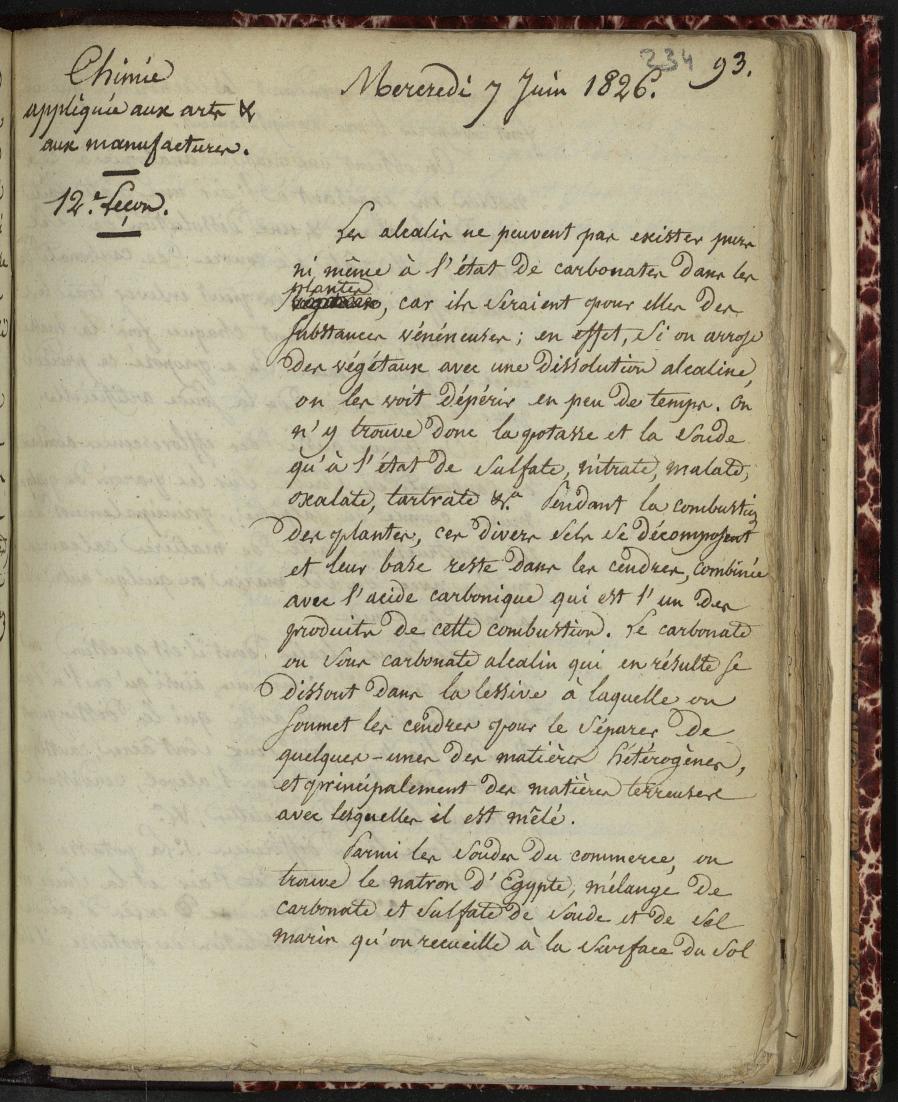 234 93.
Chimie
appliquée aux arts &
aux manufactures.
12.e Leçon.
Mercredi 7 Juin 1826.
Les alcalis ne peuvent pas exister purs
ni même à l'état de carbonates dans les
plantes
, car ils seraient pour elles des
substances vénéneuses ; en effet, si on arrose
des végétaux avec une dissolution alcaline
on les voit dépérir en peu de temps. On
n'y trouve donc la potasse et la soude
qu'à l'état de sulfate, nitrate, malate,
oxalate, tartrate &.a Pendant la combustion
des plantes, ces divers sels se décomposent
et leur base reste dans les cendres, combinée
avec l'acide carbonique qui est l'un des
produits de cette combustion. Le carbonate
ou sous carbonate alcalin qui en résulte se
dissout dans la lessive à laquelle on
soumet les cendres pour le séparer de
quelques-unes des matières hétérogènes,
et principalement des matières terreuses
avec lesquelles il est mêlé.
Parmi les soudes du commerce, on
trouve le natron d'Egypte, mélange de
carbonate et sulfate de soude et de sel
marin qu'on recueille à la surface du sol